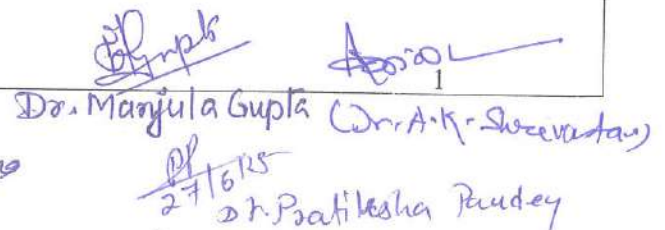 1
Dr. Manjula Gupta (Dr. A.K. Shreevastav)
27/6/25
Dr. Pratiksha Pandey